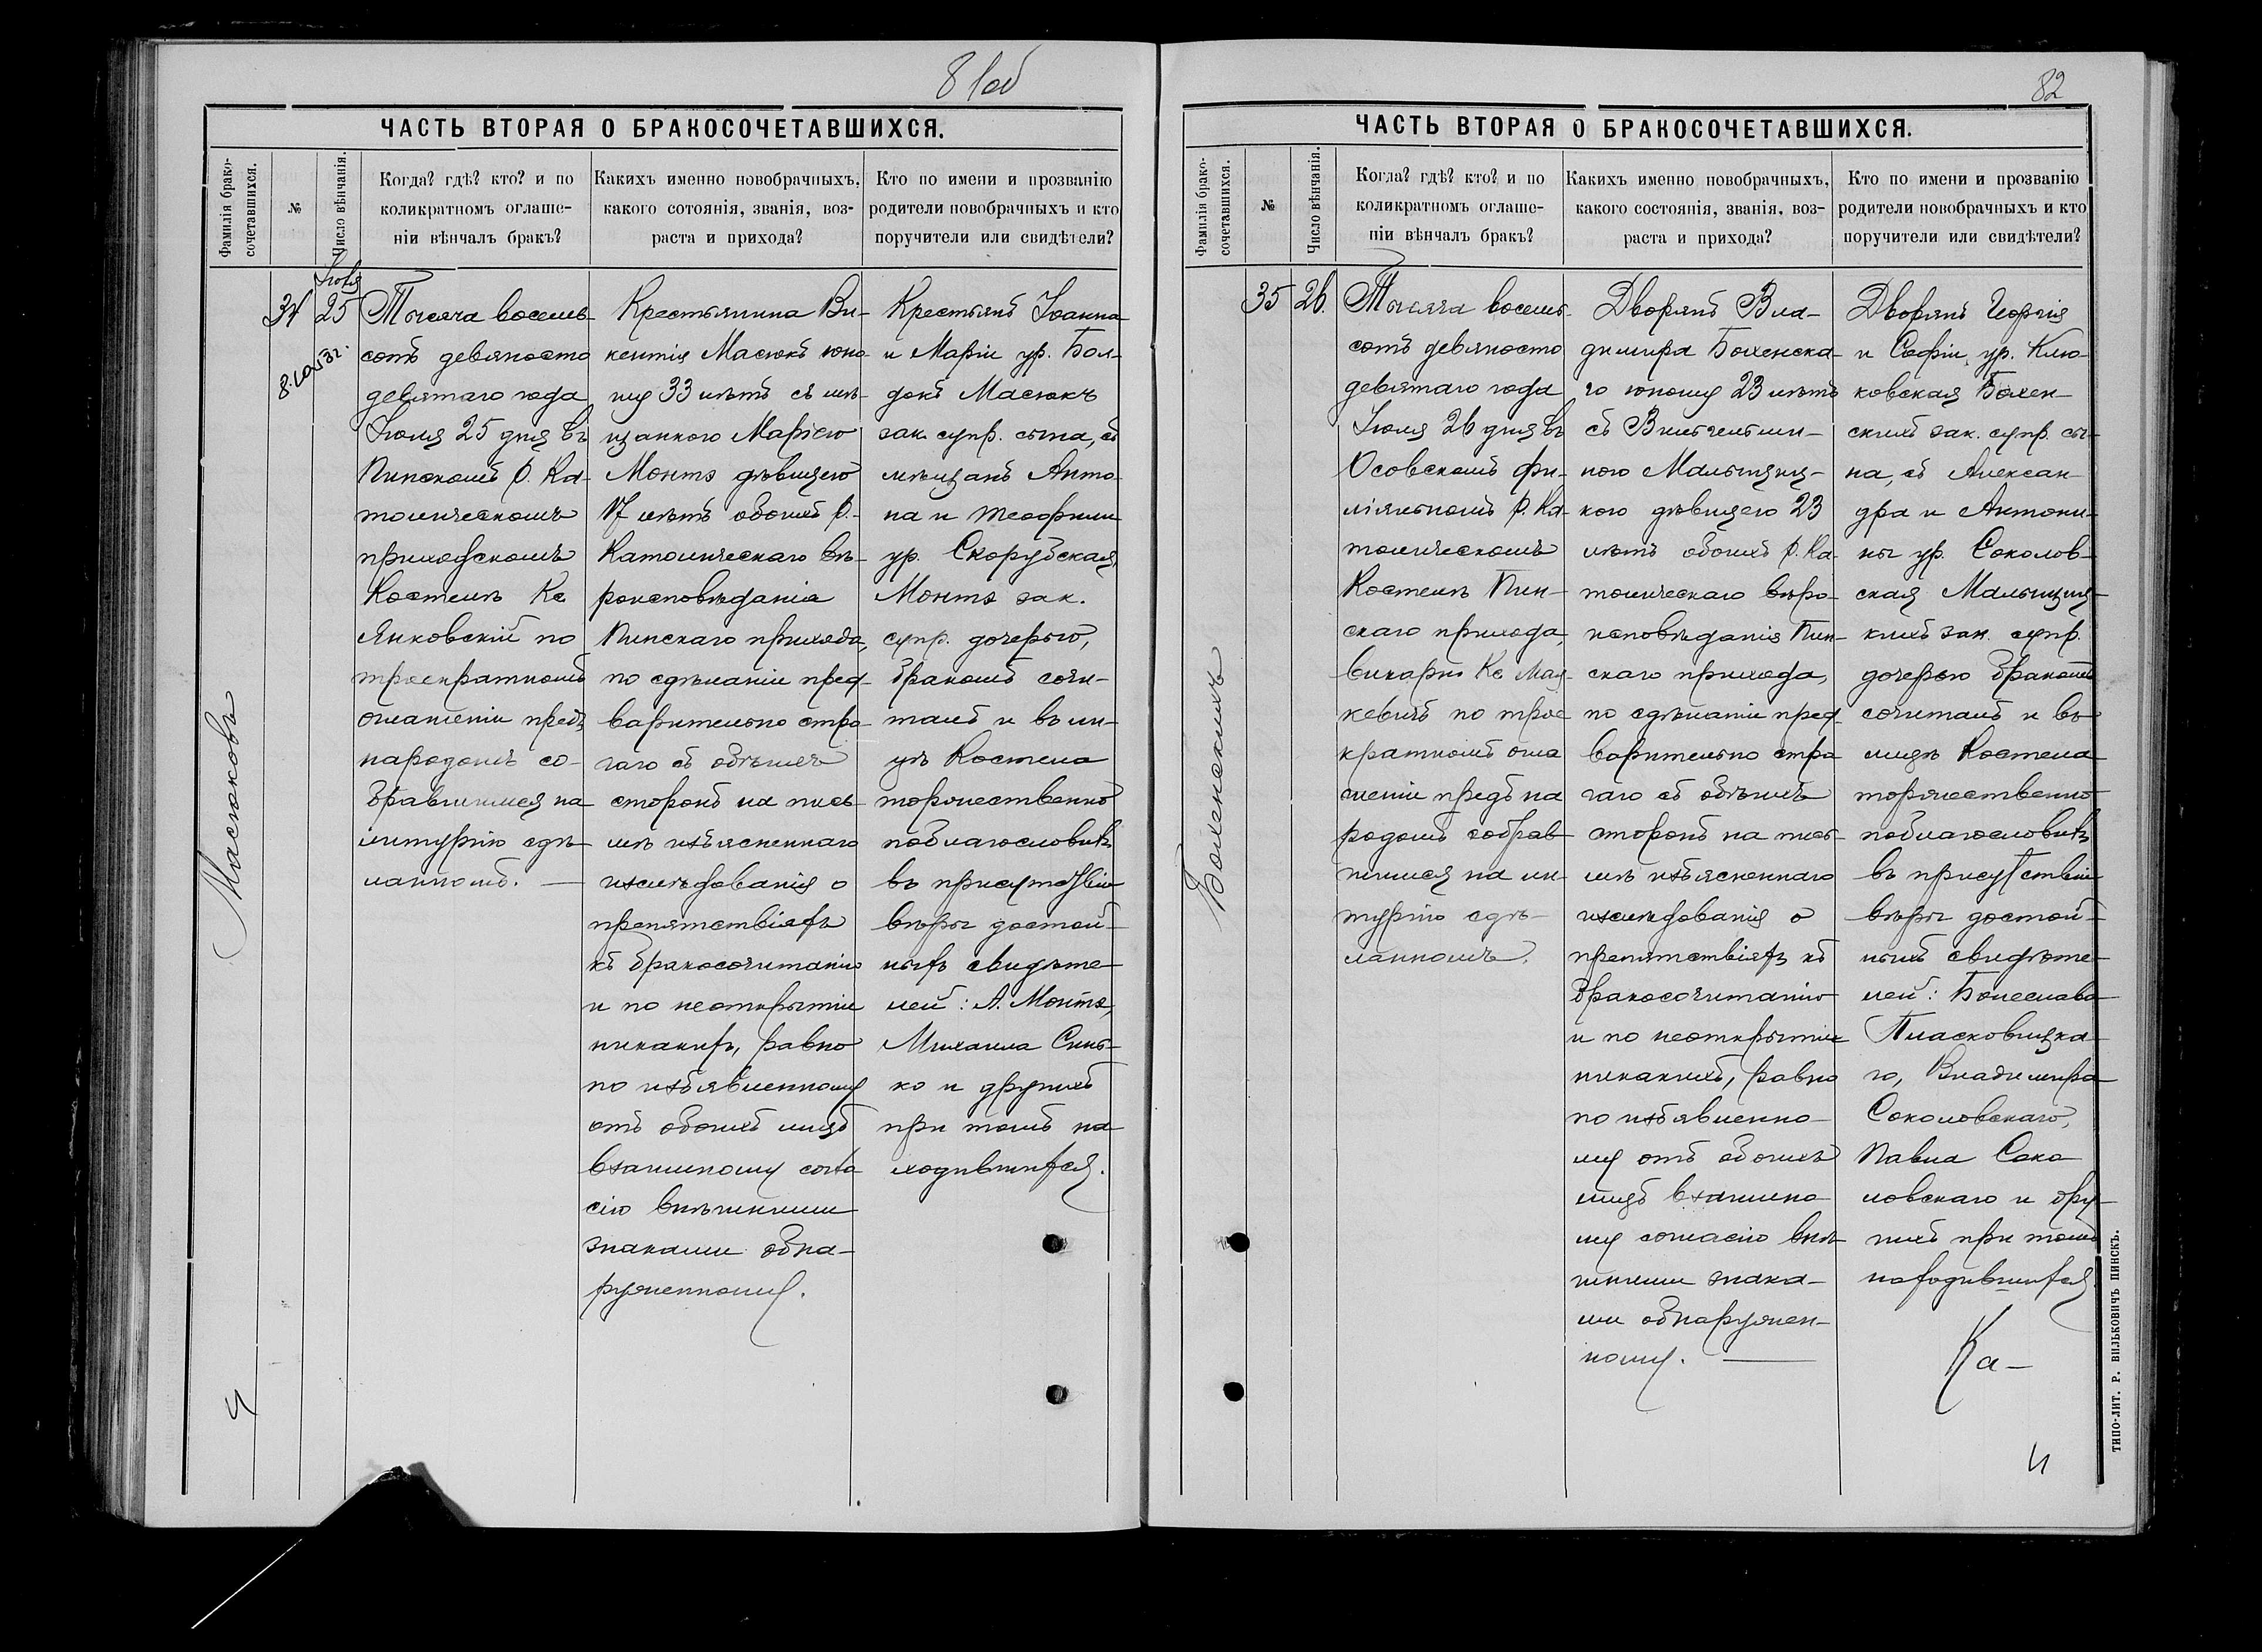 81об
ЧАСТЬ ВТОРАЯ О БРАКОСОЧЕТАВШИХСЯ.
Фамилія брако-
сочетавшихся.
№
Число вѣнчанія.
Когда? гдѣ? кто? и по
коликратномъ оглаше-
ніи вѣнчалъ бракъ?
Какихъ именно новобрачныхъ,
какого сотоянія, званія, воз-
раста и прихода?
Кто по имени и прозванію
родители новобрачныхъ и кто
поручители или свидѣтели?
Масюковъ
34
Іюля
25
Тысяча восемь-
сотъ девяносто
девятаго года
Іюля 25 дня въ
Пинскомъ Р. Ка-
толическомъ
приходскомъ
Костелѣ Кс
Янковскій по
троекратномъ
оглашеніи предъ
народомъ со-
бравшимся на
литургію сдѣ-
ланномъ. —
Крестьянина Ви-
кентія Масюкъ юно-
шу 33 лѣтъ съ мѣ-
щанкою Маріею
Монтэ дѣвицею
17 лѣтъ обоихъ Р.-
Католическаго вѣ-
роисповѣданія
Пинскаго прихода,
по сдѣланіи пред-
варительно стро-
гаго съ обѣихъ
сторонъ на пись-
мѣ изъясненнаго
изслѣдованія о
препятствіяхъ
къ бракосочитанію
и по неоткрытіи
никакихъ, равно
по изъявленному
отъ обоихъ лицъ
взаимному согла
сію внѣшними
знаками обна-
руженному.
Крестьянъ Іоанна
и Маріи ур. Бол-
докъ Масюкъ
зак. супр. сына, съ
мѣщанъ Анто-
на и Теофили
ур. Скорубская,
Монтэ зак.
супр. дочерью,
бракомъ сочи-
талъ и въ ли-
цѣ Костела
торжественно
поблагословилъ
въ присутствіи
вѣры достой-
ныхъ свидѣте-
лей: А. Монтэ,
Михаила Сниг-
ко и другихъ
при томъ на-
ходившихся.
82
ЧАСТЬ ВТОРАЯ О БРАКОСОЧЕТАВШИХСЯ.
Фамилія брако-
сочетавшихся.
№
Число вѣнчанія.
Когда? гдѣ? кто? и по
коликратномъ оглаше-
ніи вѣнчалъ бракъ?
Какихъ именно новобрачныхъ,
какого состоянія, званія, воз-
раста и прихода?
Кто по имени и прозванію
родители новобрачныхъ и кто
поручители или свидѣтели?
Боженскихъ
35
26.
Тысяча восемь-
сотъ девяносто
девятаго года
Іюля 26 дня въ
Осовскомъ фи-
ліяльномъ Р. Ка-
толическомъ
Костелѣ Пин-
скаго прихода,
викарій Кс Мац-
кевичъ по трое
кратномъ огла
шеніи предъ на
родомъ собрав
шимся на ли-
тургію сдѣ-
ланномъ.
Дворянъ Вла-
димира Боженска-
го юношу 23 лѣтъ
съ Вильгельми-
ною Мальчиц-
кою дѣвицею 23
лѣтъ обоихъ Р. Ка-
толическаго вѣро-
исповѣданія Пин-
скаго прихода,
по сдѣланіи пред-
варительно стро
гаго съ обѣихъ
сторонъ на пись-
мѣ изъясненнаго
изслѣдованія о
препятствіяхъ къ
бракосочитанію
и по неоткрытіи
никакихъ, равно
по изъявленно-
му отъ обоихъ
лицъ взаимно
му согласію внѣ-
шними знака-
ми обнаружен-
ному. —
Дворянъ Георгія
и Софіи ур. Клю-
ковская Божен-
скихъ зак. супр. сы-
на, съ Алексан-
дра и Антони-
ны ур. Соколов-
ская Мальчиц-
кихъ зак. супр.
дочерью бракомъ
сочиталъ и въ
лицѣ Костела
торжественно
поблагословилъ
въ присутствіи
вѣры достой-
ныхъ свидѣте-
лей: Болеслава
Пласковицка-
го, Владимира
Соколовскаго,
Павла Соко
ловскаго и дру-
гихъ при томъ
находившихся.
Ка-
ТИПО-ЛИТ. Р. ВИЛЬКОВИЧЪ ПИНСКЪ.